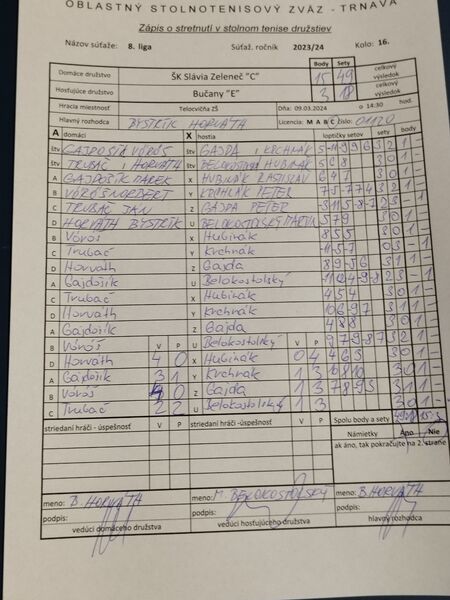 OBLASTNÝ STOLNOTENISOVÝ ZVÄZ - TRNAVA
Zápis o stretnutí v stolnom tenise družstiev
Názov súťaže: 8. liga Súťaž. ročník 2023/24 Kolo: 16.
Body Sety celkový
Domáce družstvo ŠK Slávia Zeleneč "C" 15 49 výsledok
Hosťujúce družstvo Bučany "E" 3 18 celkový výsledok
Hracia miestnosť Telocvičňa ZŠ Dňa: 09.03.2024 o 14:30 hod.
Hlavný rozhodca BYSTRÍK HORVÁTH Licencia: M A B C číslo: 01120
A domáci X hostia loptičky setov sety body
štv GAJDOŠÍK VÖRÖS štv GAJDA i KRCHŇÁK
štv TRUBAČ i HORVÁTH štv BELOKOSTOLSKÝ HUBINÁK 5 6 8 3 0 1 -
A GAJDOŠÍK MAREK X HUBINÁK RASTISLAV 6 4 7 3 0 1 -
B VÖRÖS NORBERT Y KRCHŇÁK PETER
C TRUBAČ JÁN Z GAJDA PETER
D HORVÁTH BYSTRÍK U BELOKOSTOLSKÝ MARTIN 5 7 9 3 0 1 -
B Vörös X Hubinák 8 5 5 3 0 1 -
C Trubač Y Krchnák 0 3 - 1
D Horváth Z Gajda 3 1 1 -
A Gajdošík U Belokostolský
C Trubač X Hubinák 4 5 4 3 0 1 -
D Horváth Y Krchnák 3 1 1 -
A Gajdošík Z Gajda 4 8 8 3 0 1 -
B Vörös V P U Belokostolský V P 3 2 1 -
D Horváth 4 0 X Hubinák 0 4 4 6 3 3 0 1 -
A Gajdošík 3 1 Y Krchnák 1 3 3 0 1 -
B Vörös 4 0 Z Gajda 1 3 3 1 1 -
C Trubač 2 2 U Belokostolský 1 3 3 0 1 -
striedaní hráči - úspešnosť V P striedaní hráči -úspešnosť V P Spolu body a sety 49 18 15 3
Námietky Áno Nie
ak áno, tak pokračujte na 2. strane
meno: B. HORVÁTH meno: M. BELOKOSTOLSKÝ meno: B. HORVÁTH
podpis: podpis: podpis:
vedúci domáceho družstva vedúci hosťujúceho družstva hlavný rozhodca